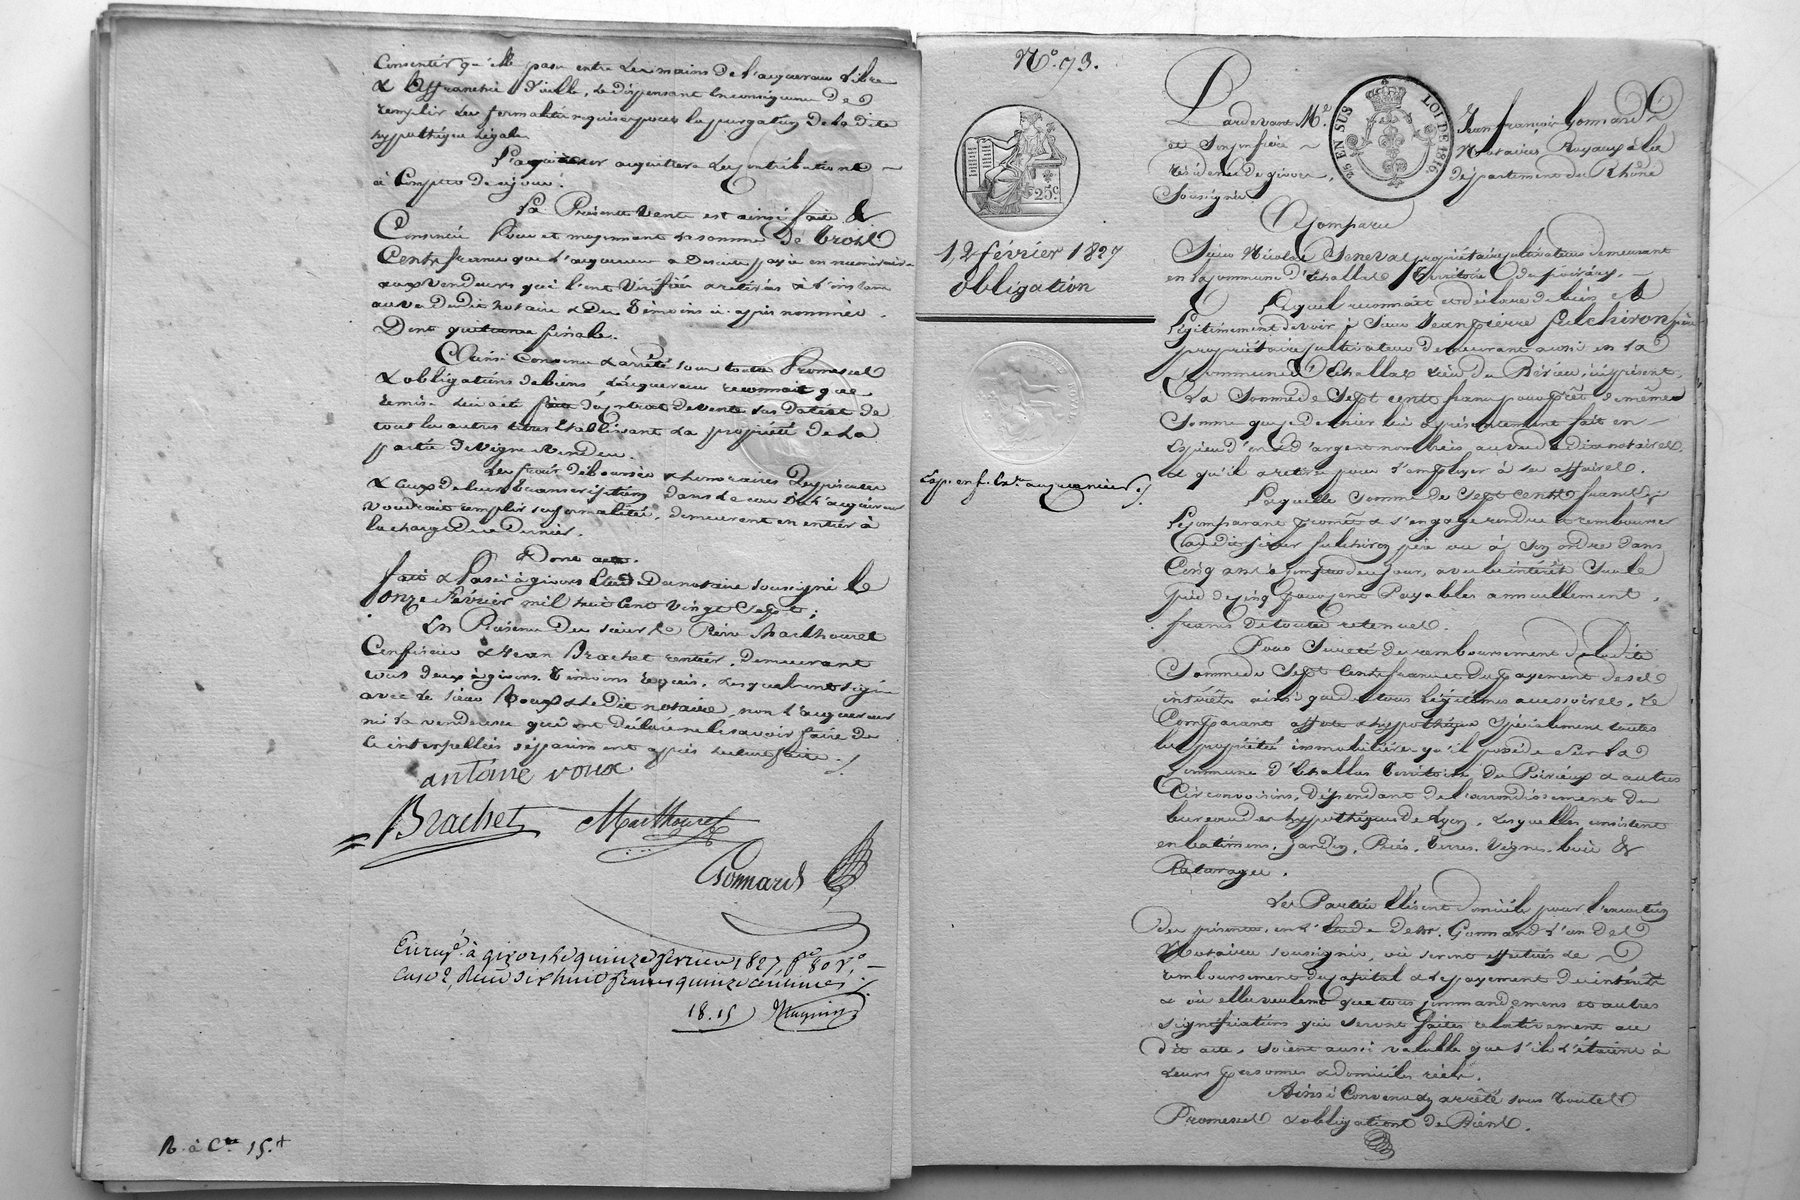 Consentir qu'elle passe entre les mains de l'acquereur libre
& affranchie d'icelle, le dispensant en conséquence de
remplir les formalités requises pour la purgation de la dite
hypothèque légale.
L'acquéreur acquittera les contributions
à Compter de ce jour.
La Présente vente est ainsi faite &
Consentie pour et moyennant la somme de trois
Cents francs que l'acquereur a de suite payée en numéraire
aux vendeurs qui l'ont vérifiée & retirée à l'instant
au vu du dit notaire & des témoins ci-après nommés.
Dont quittance finale.
Ainsi Convenu & arrêté sous toutes Promesses
& obligations de biens, l'acquereur reconnait que
remise lui a été faite du contrat de vente sus daté & de
tous les autres titres établissant la propriété de la
partie de vigne vendue.
Les frais déboursés & honoraires des présentes
& ceux de leur transcription dans le cas où l'acquéreur
voudrait remplir ces formalités, demeurent en entier à
la charge de ce dernier.
Dont acte.
fait & Passé à givors Etude du notaire soussigné le
onze février mil huit cent vingt sept;
En Présence des sieurs Pierre Marthouret
Confiseur & Jean Brachet rentier, demeurant
tous deux à givors, témoins requis, lesquels ont signé
avec le sieur Roux & le dit notaire, non l'acquereur
ni la venderesse qui ont déclaré ne le savoir faire de
ce interpellés séparément après lecture faite ./.
antoine roux
Brachet Marthouret
Gonnard
Enregé à givors, le quinze février 1827, fo 80 Vo,
case 2, Reçu dix huit francs quinze centimes ./.
18.15
R. à Cre 15.+
No. 93.
25c
12 février 1827
Obligation
25 EN SUS
LOI DE 1816.
Pardevant Me. Jean françois Gonnard
et son confrère Notaires Royaux à la
résidence de givors, département du Rhône
Soussignés
A Comparu
Sieur Nicolas Seneval propriétaire cultivateur demeurant
en la commune d'Echallas Territoire du
Lequel reconnait et déclare de bien &
légitimement devoir à Sieur Jean pierre fulchiron père
propriétaire cultivateur demeurant aussi en la
Commune d'Echallas lieu du ici présent,
La Somme de Sept cents francs pour prêt de même
Somme que ce dernier lui a présentement fait en
Espèces d'or & d'argent nombrées au vu des dits notaires,
et qu'il a retirée pour l'employer à ses affaires.
Laquelle Somme de Sept Cents francs
le Comparant promet & s'engage rendre & rembourser
au dit sieur fulchiron père ou à Son ordre dans
Cinq ans à compter de ce jour, avec les intérêts Sur le
pied de cinq pour cent Payables annuellement,
francs de toutes retenues.
Pour Sureté du remboursement de la dite
Somme de Sept Cents francs et du payement de ses
intérêts ainsi que de tous légitimes accessoires, le
Comparant affecte & hypothèque Spécialement toutes
les propriétés immobilières qu'il possède Sur la
Commune d'Echallas Territoire du & autres
Circonvoisins, dépendant de l'arrondissement du
bureau des hypothèques de Lyon, lesquelles consistent
en batimens, Jardin, Prés, terres, Vignes, bois &
Paturages.
Les Parties élisent domicile pour l'exécution
des présentes, en l'étude de Me. Gonnard l'un des
Notaires soussignés, où seront effectués le
remboursement du capital & le payement des intérêts
& où elles veulent que tous commandemens et autres
significations qui seront faites relativement au
dit acte, soient aussi valable que s'ils l'étaient à
leurs personnes & domiciles réels.
Ainsi Convenu & arrêté sous toutes
Promesses & obligations de Biens.